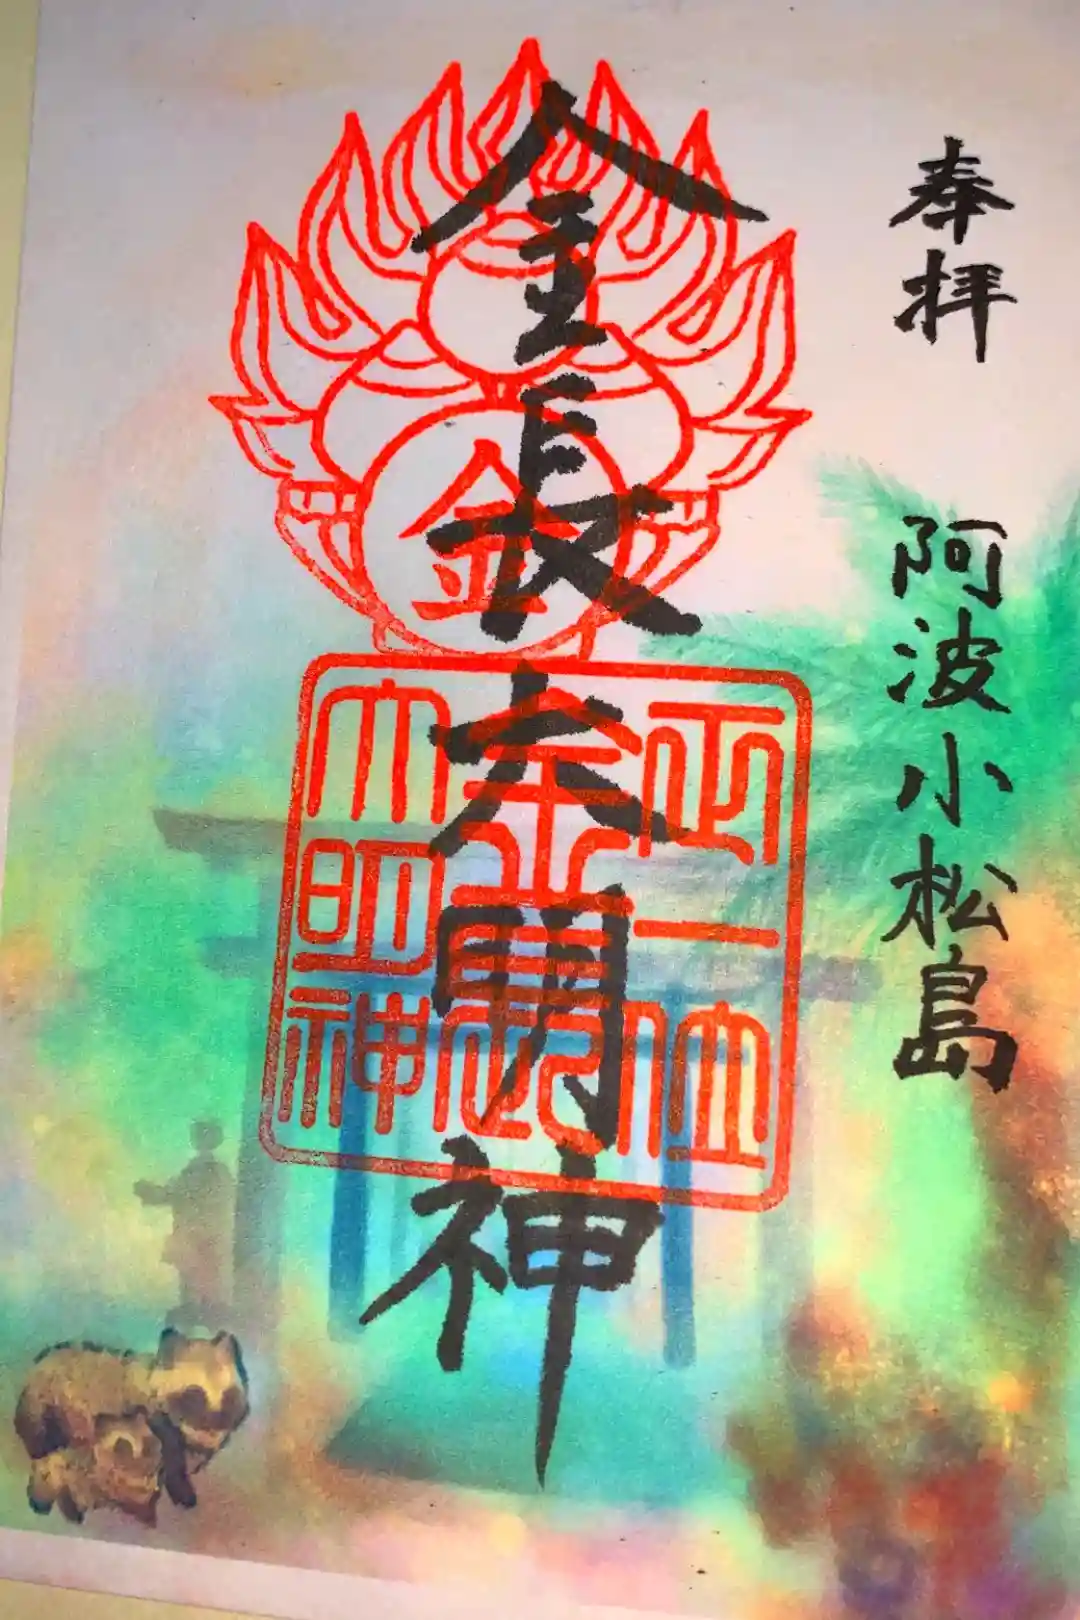 奉拝
阿波小松島
金長大明神
金
正一位
金長
大明神